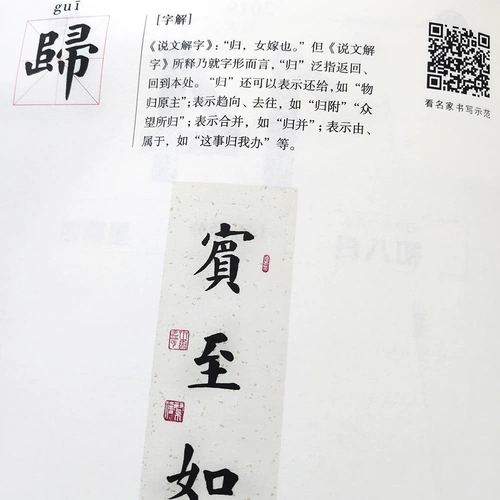 guī
歸
[字解]
《说文解字》：“归，女嫁也。”但《说文解
字》所释乃就字形而言，“归”泛指返回、
回到本处。“归”还可以表示还给，如“物
归原主”；表示趋向、去往，如“归附”“众
望所归”；表示合并，如“归并”；表示由、
属于，如“这事归我办”等。
看名家书写示范
賓
至
如